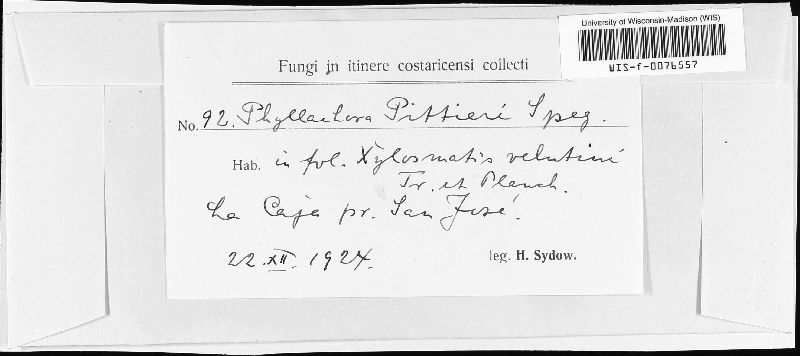 University of Wisconsin-Madison (WIS)
WIS-f-0076557
Fungi in itinere costaricensi collecti
No. 92. Phyllachora Pittieri Speg.
Hab. in fol. Xylosmatis velutini
Tr. et Planch.
La Caja pr. San José.
22.XII.1924.
leg. H. Sydow.